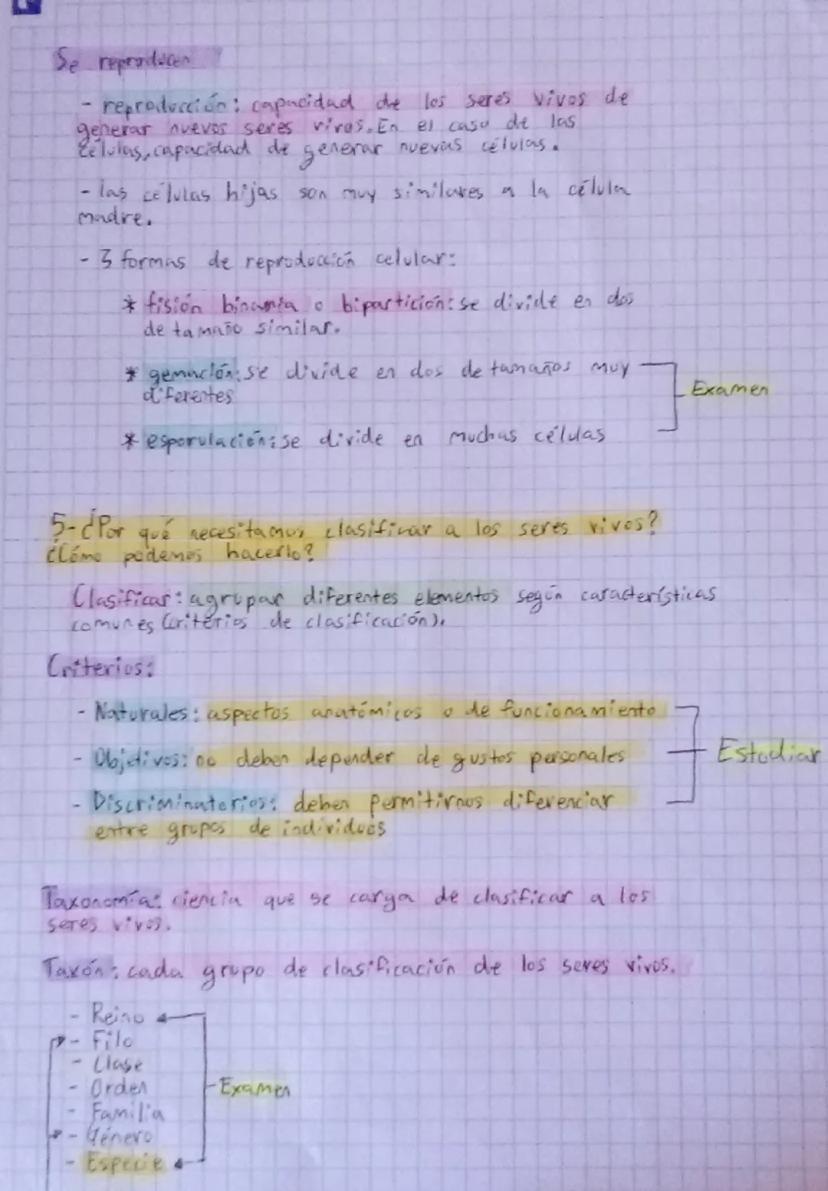 Se reproducen
- reproducción: capacidad de los seres vivos de
generar nuevos seres vivos. En el caso de las
células, capacidad de generar nuevas células.
- las células hijas son muy similares a la célula
madre.
- 3 formas de reproducción celular:
* fisión binaria o bipartición: se divide en dos
de tamaño similar.
* gemación: se divide en dos de tamaños muy
diferentes
Examen
* esporulación: se divide en muchas células
5-¿Por qué necesitamos clasificar a los seres vivos?
¿Cómo podemos hacerlo?
Clasificar: agrupar diferentes elementos según características
comunes (criterios de clasificación).
Criterios:
- Naturales: aspectos anatómicos o de funcionamiento
- Objetivos: no deben depender de gustos personales
Estudiar
- Discriminatorios: deben permitirnos diferenciar
entre grupos de individuos
Taxonomía: ciencia que se carga de clasificar a los
seres vivos.
Taxón: cada grupo de clasificación de los seres vivos.
- Reino
- Filo
- Clase
- Orden
Examen
- Familia
- Género
- Especie